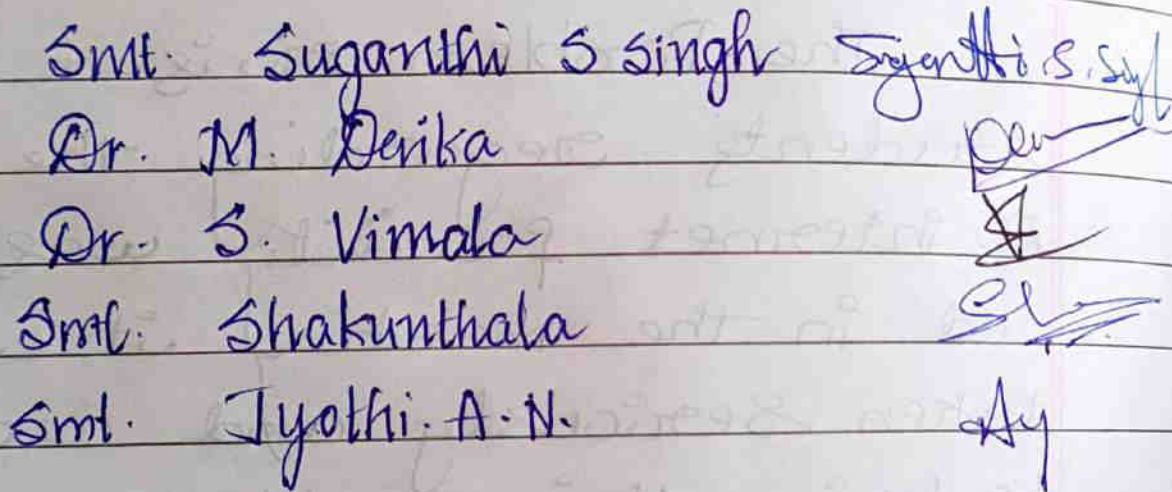 Smt. Suganthi S Singh Suganthi.S.Singh
Dr. M. Devika Dev
Dr. S. Vimala
Smt. Shakunthala
Smt. Jyothi. A. N. Ay